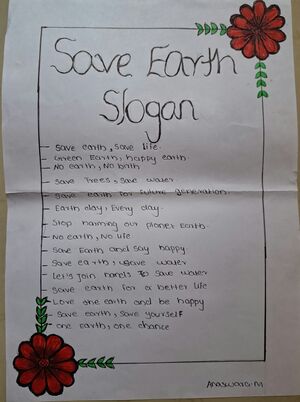 Save Earth
Slogan
– Save earth, save life.
– Green Earth, happy earth.
– No earth, No birth
– Save Trees, save water
– Save earth for future generation.
– Earth day, Every day.
– Stop harming our planet Earth.
– No earth, No life
– Save Earth and say happy.
– Save earth, save water
– Let's join hands to save water
– Save earth for a better life
– Love the earth and be happy
– Save earth, save yourself
– one earth, one chance
Anaswara.M